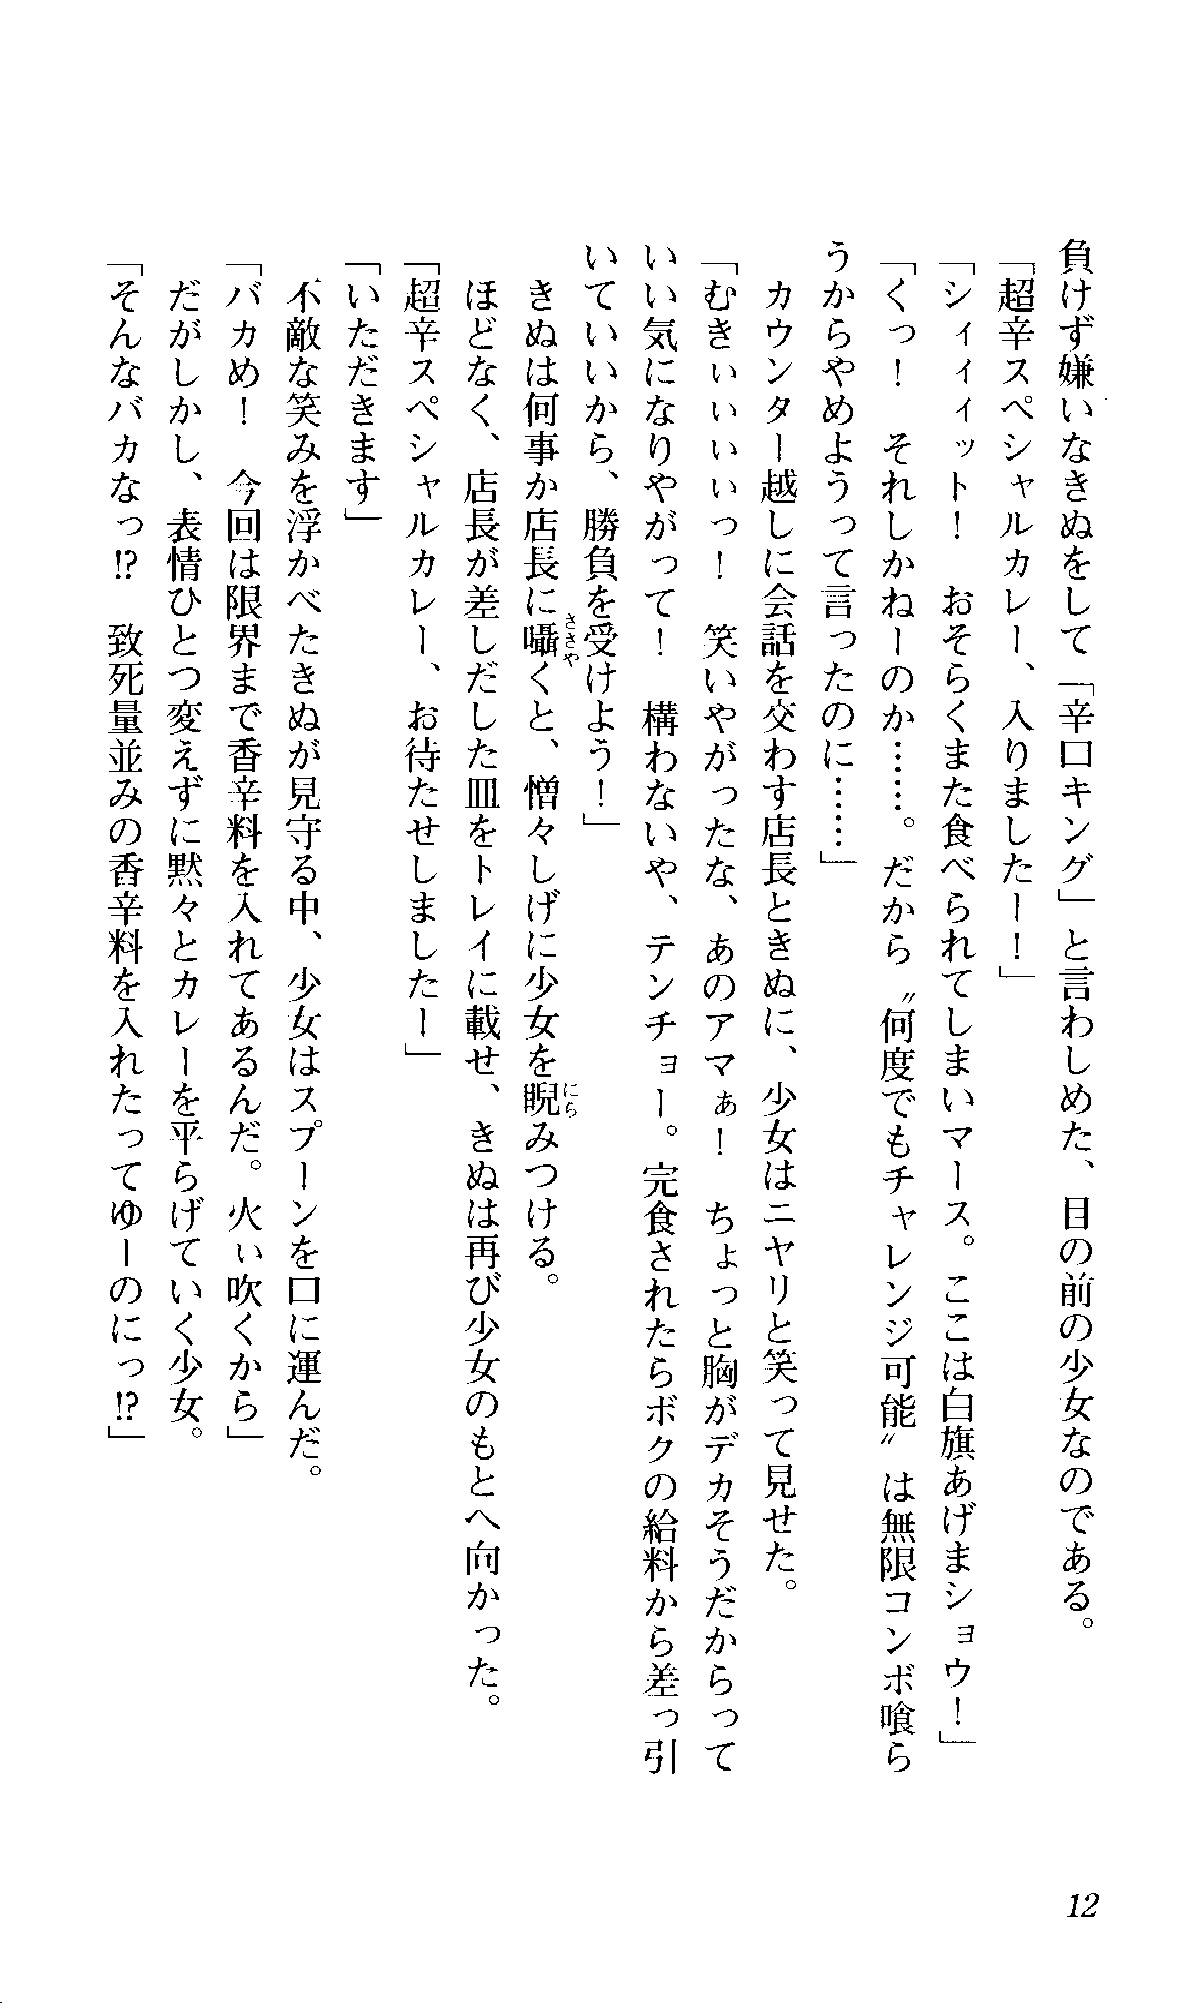 負けず嫌いなきぬをして「辛口キング」と言わしめた、目の前の少女なのである。
「超辛スペシャルカレー、入りましたー！」
「シィィィット！　おそらくまた食べられてしまいマース。ここは白旗あげまショウ！」
「くっ！　それしかねーのか……。だから〝何度でもチャレンジ可能〟は無限コンボ喰ら
うからやめようって言ったのに……」
　カウンター越しに会話を交わす店長ときぬに、少女はニヤリと笑って見せた。
「むきぃぃぃぃっ！　笑いやがったな、あのアマぁ！　ちょっと胸がデカそうだからって
いい気になりやがって！　構わないや、テンチョー。完食されたらボクの給料から差っ引
いていいから、勝負を受けよう！」
　きぬは何事か店長に囁くと、憎々しげに少女を睨みつける。
　ほどなく、店長が差しだした皿をトレイに載せ、きぬは再び少女のもとへ向かった。
「超辛スペシャルカレー、お待たせしましたー」
「いただきます」
　不敵な笑みを浮かべたきぬが見守る中、少女はスプーンを口に運んだ。
「バカめ！　今回は限界まで香辛料を入れてあるんだ。火ぃ吹くから」
　だがしかし、表情ひとつ変えずに黙々とカレーを平らげていく少女。
「そんなバカなっ!?　致死量並みの香辛料を入れたってゆーのにっ!?」
12